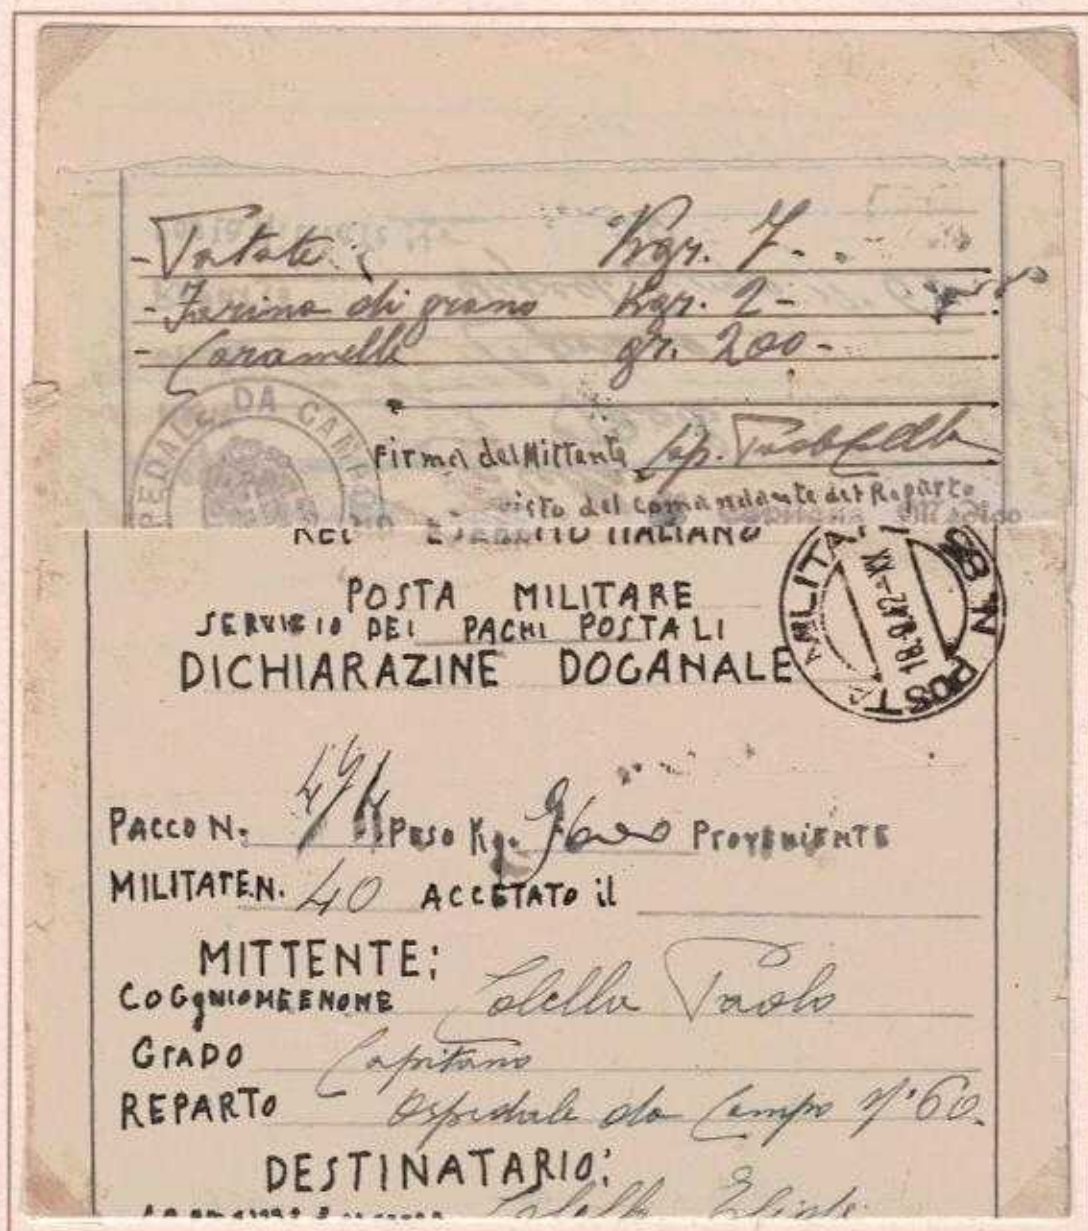 - Patate Kgr. 7 -
- Farina di grano Kgr. 2 -
- Caramelle gr. 200 -
OSPEDALE DA CAMPO
Firma del Mittente Cap. Paolo Colella
visto del Comandante del Reparto
ITALIANO
POSTA MILITARE
SERVIZIO DEI PACHI POSTALI
DICHIARAZINE DOGANALE
POSTA MILITARE N. 18.9.42-XX
PACCO N. PESO Kg. PROVENIENTE
MILITATE N. 40 ACCETATO il
MITTENTE:
COGgNIOMEENOME Colella Paolo
GrADO Capitano
REPARTO Ospedale da Campo N° 60.
DESTINATARIO:
Colella